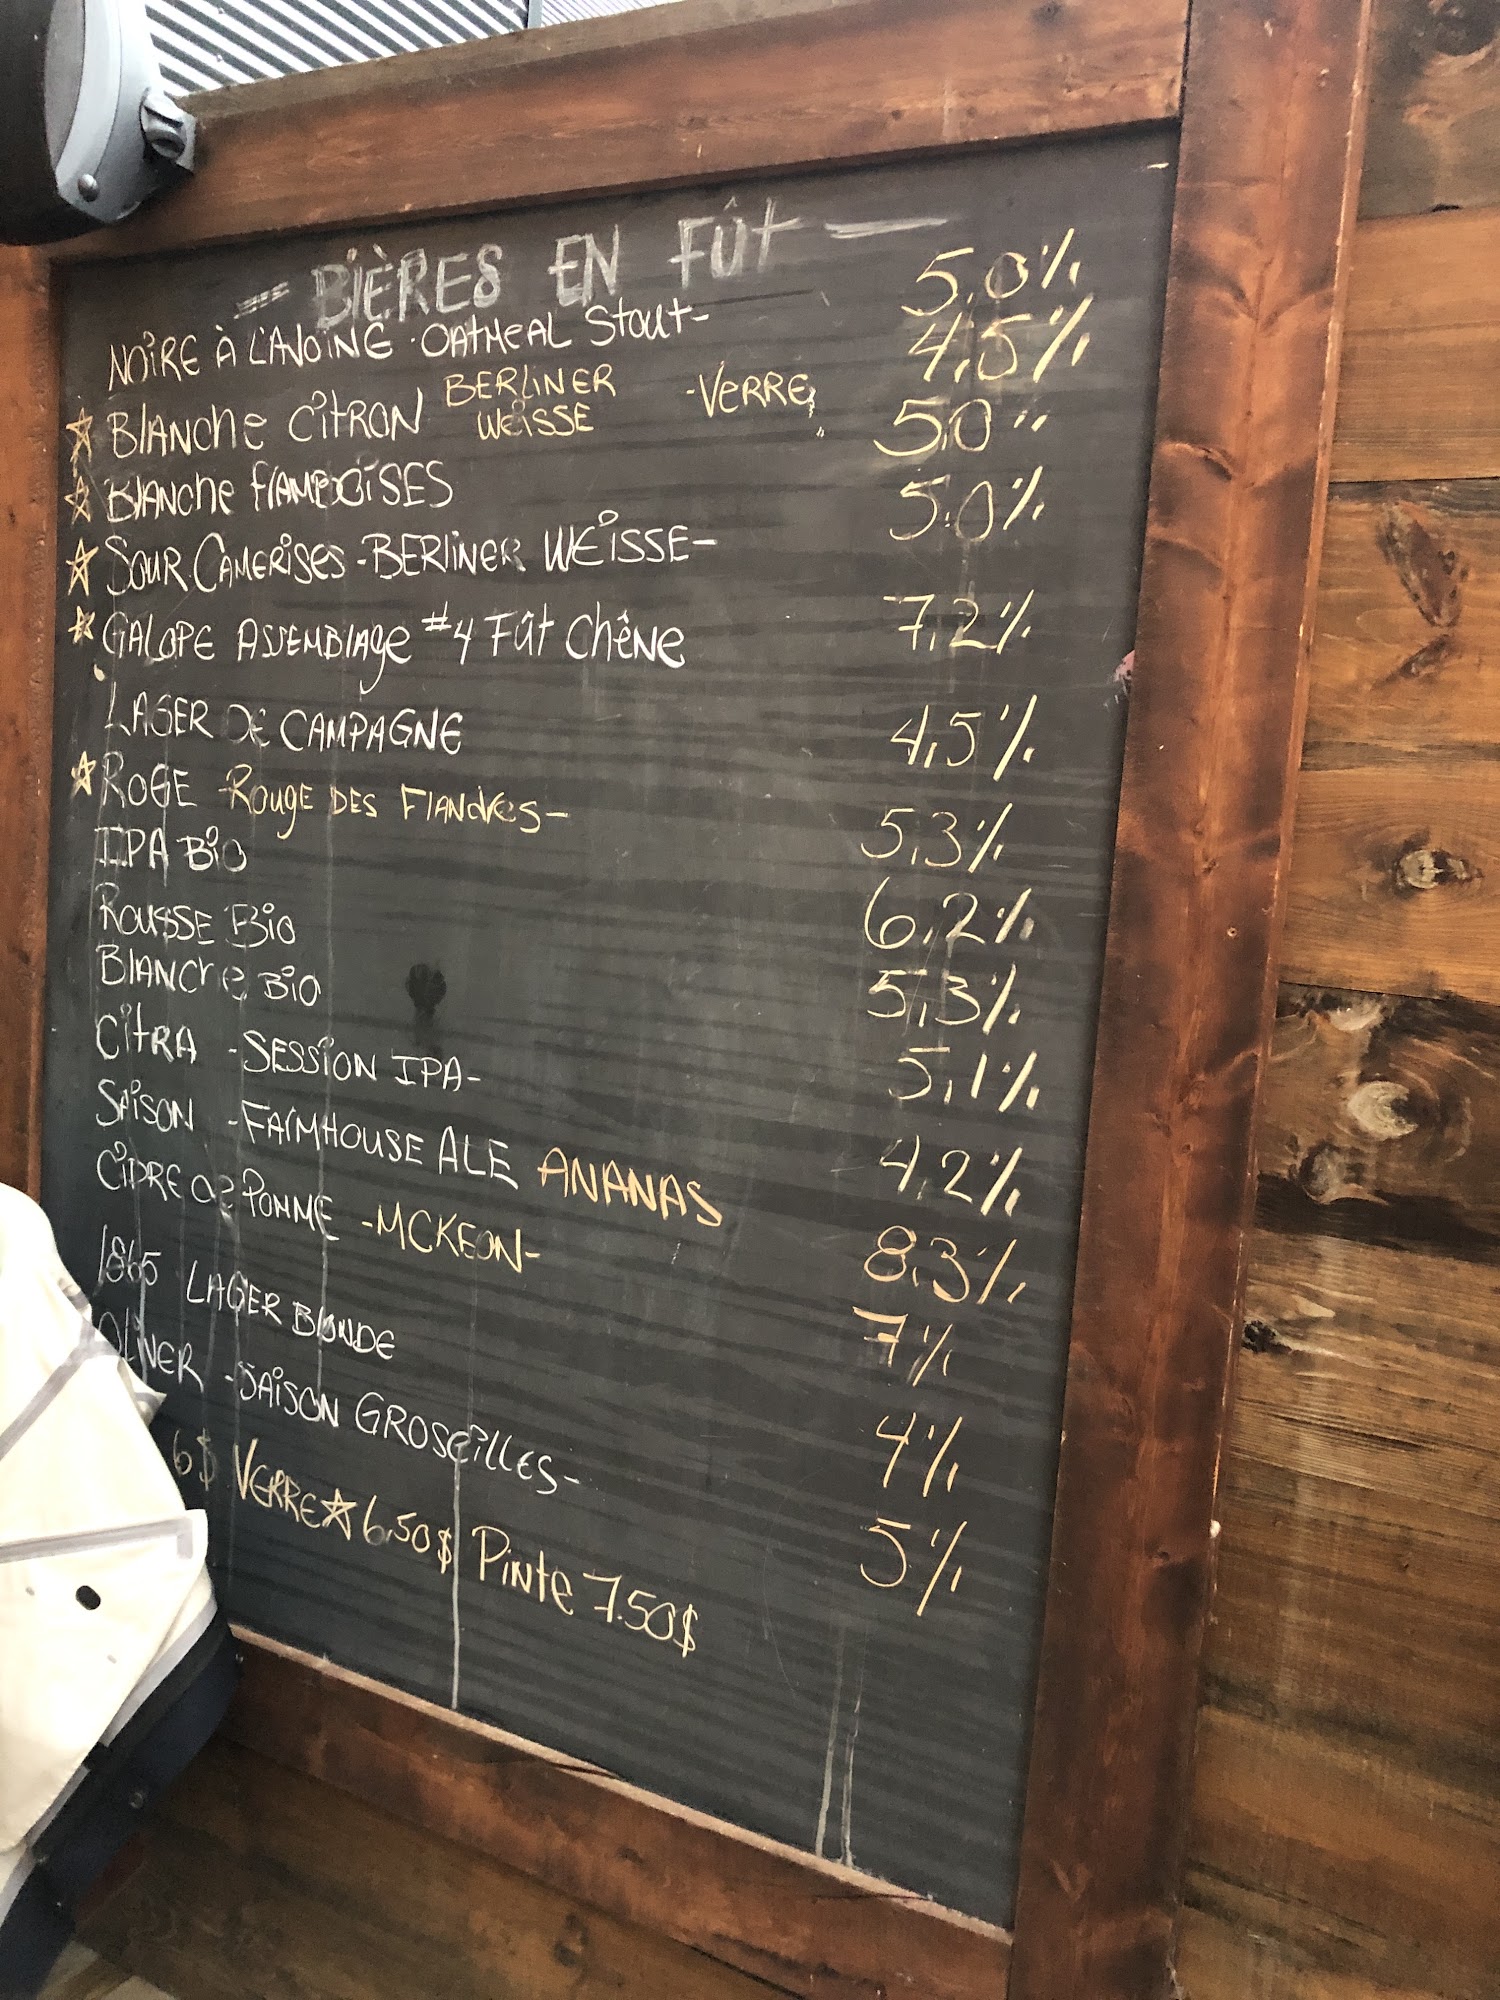 - BIÈRES EN FÛT -
NOIRE À L'AVOINE - OATMEAL STOUT - 5,0%
☆ BLANCHE CITRON BERLINER WEISSE - VERRE 4,5%
☆ BLANCHE FRAMBOISES 5,0 "
☆ SOUR CAMERISES - BERLINER WEISSE - 5,0%
☆ GALOPE ASSEMBLAGE #4 FÛT CHÊNE 7,2%
LAGER DE CAMPAGNE 4,5%
☆ ROGE - ROUGE DES FLANDRES - 5,3%
IPA BIO 6,2%
ROUSSE BIO 5,3%
BLANCHE BIO 5,1%
CITRA - SESSION IPA - 4,2%
SAISON - FARMHOUSE ALE ANANAS 8,3%
CIDRE DE POMME - MCKEON - 7%
1865 LAGER BLONDE 4%
OLIVER - SAISON GROSEILLES - 5%
6$ VERRE ☆ 6,50$ PINTE 7.50$